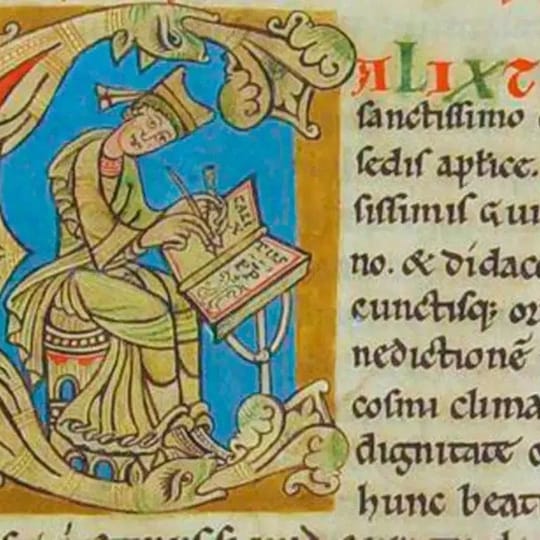 ALIXT
sanctissimo
sedis aplice.
sissimis Gui
no. & didaco
cunctisq; or
nedictionē
cosmi clima
dignitate
hunc beat